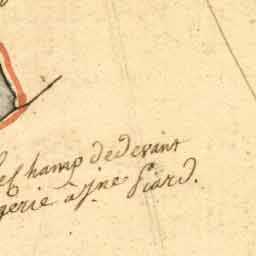 champ dedevant
gerie à Jne Siard.